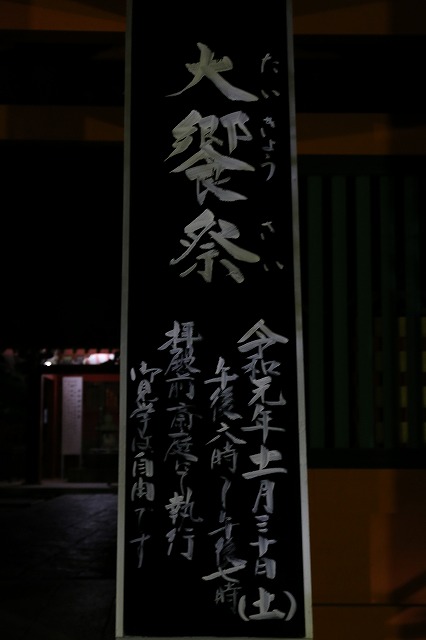 大饗祭
たいきょうさい
令和元年十一月三十日(土)
午後六時〜午後七時
拝殿前斎庭にて執行
御見学は自由です